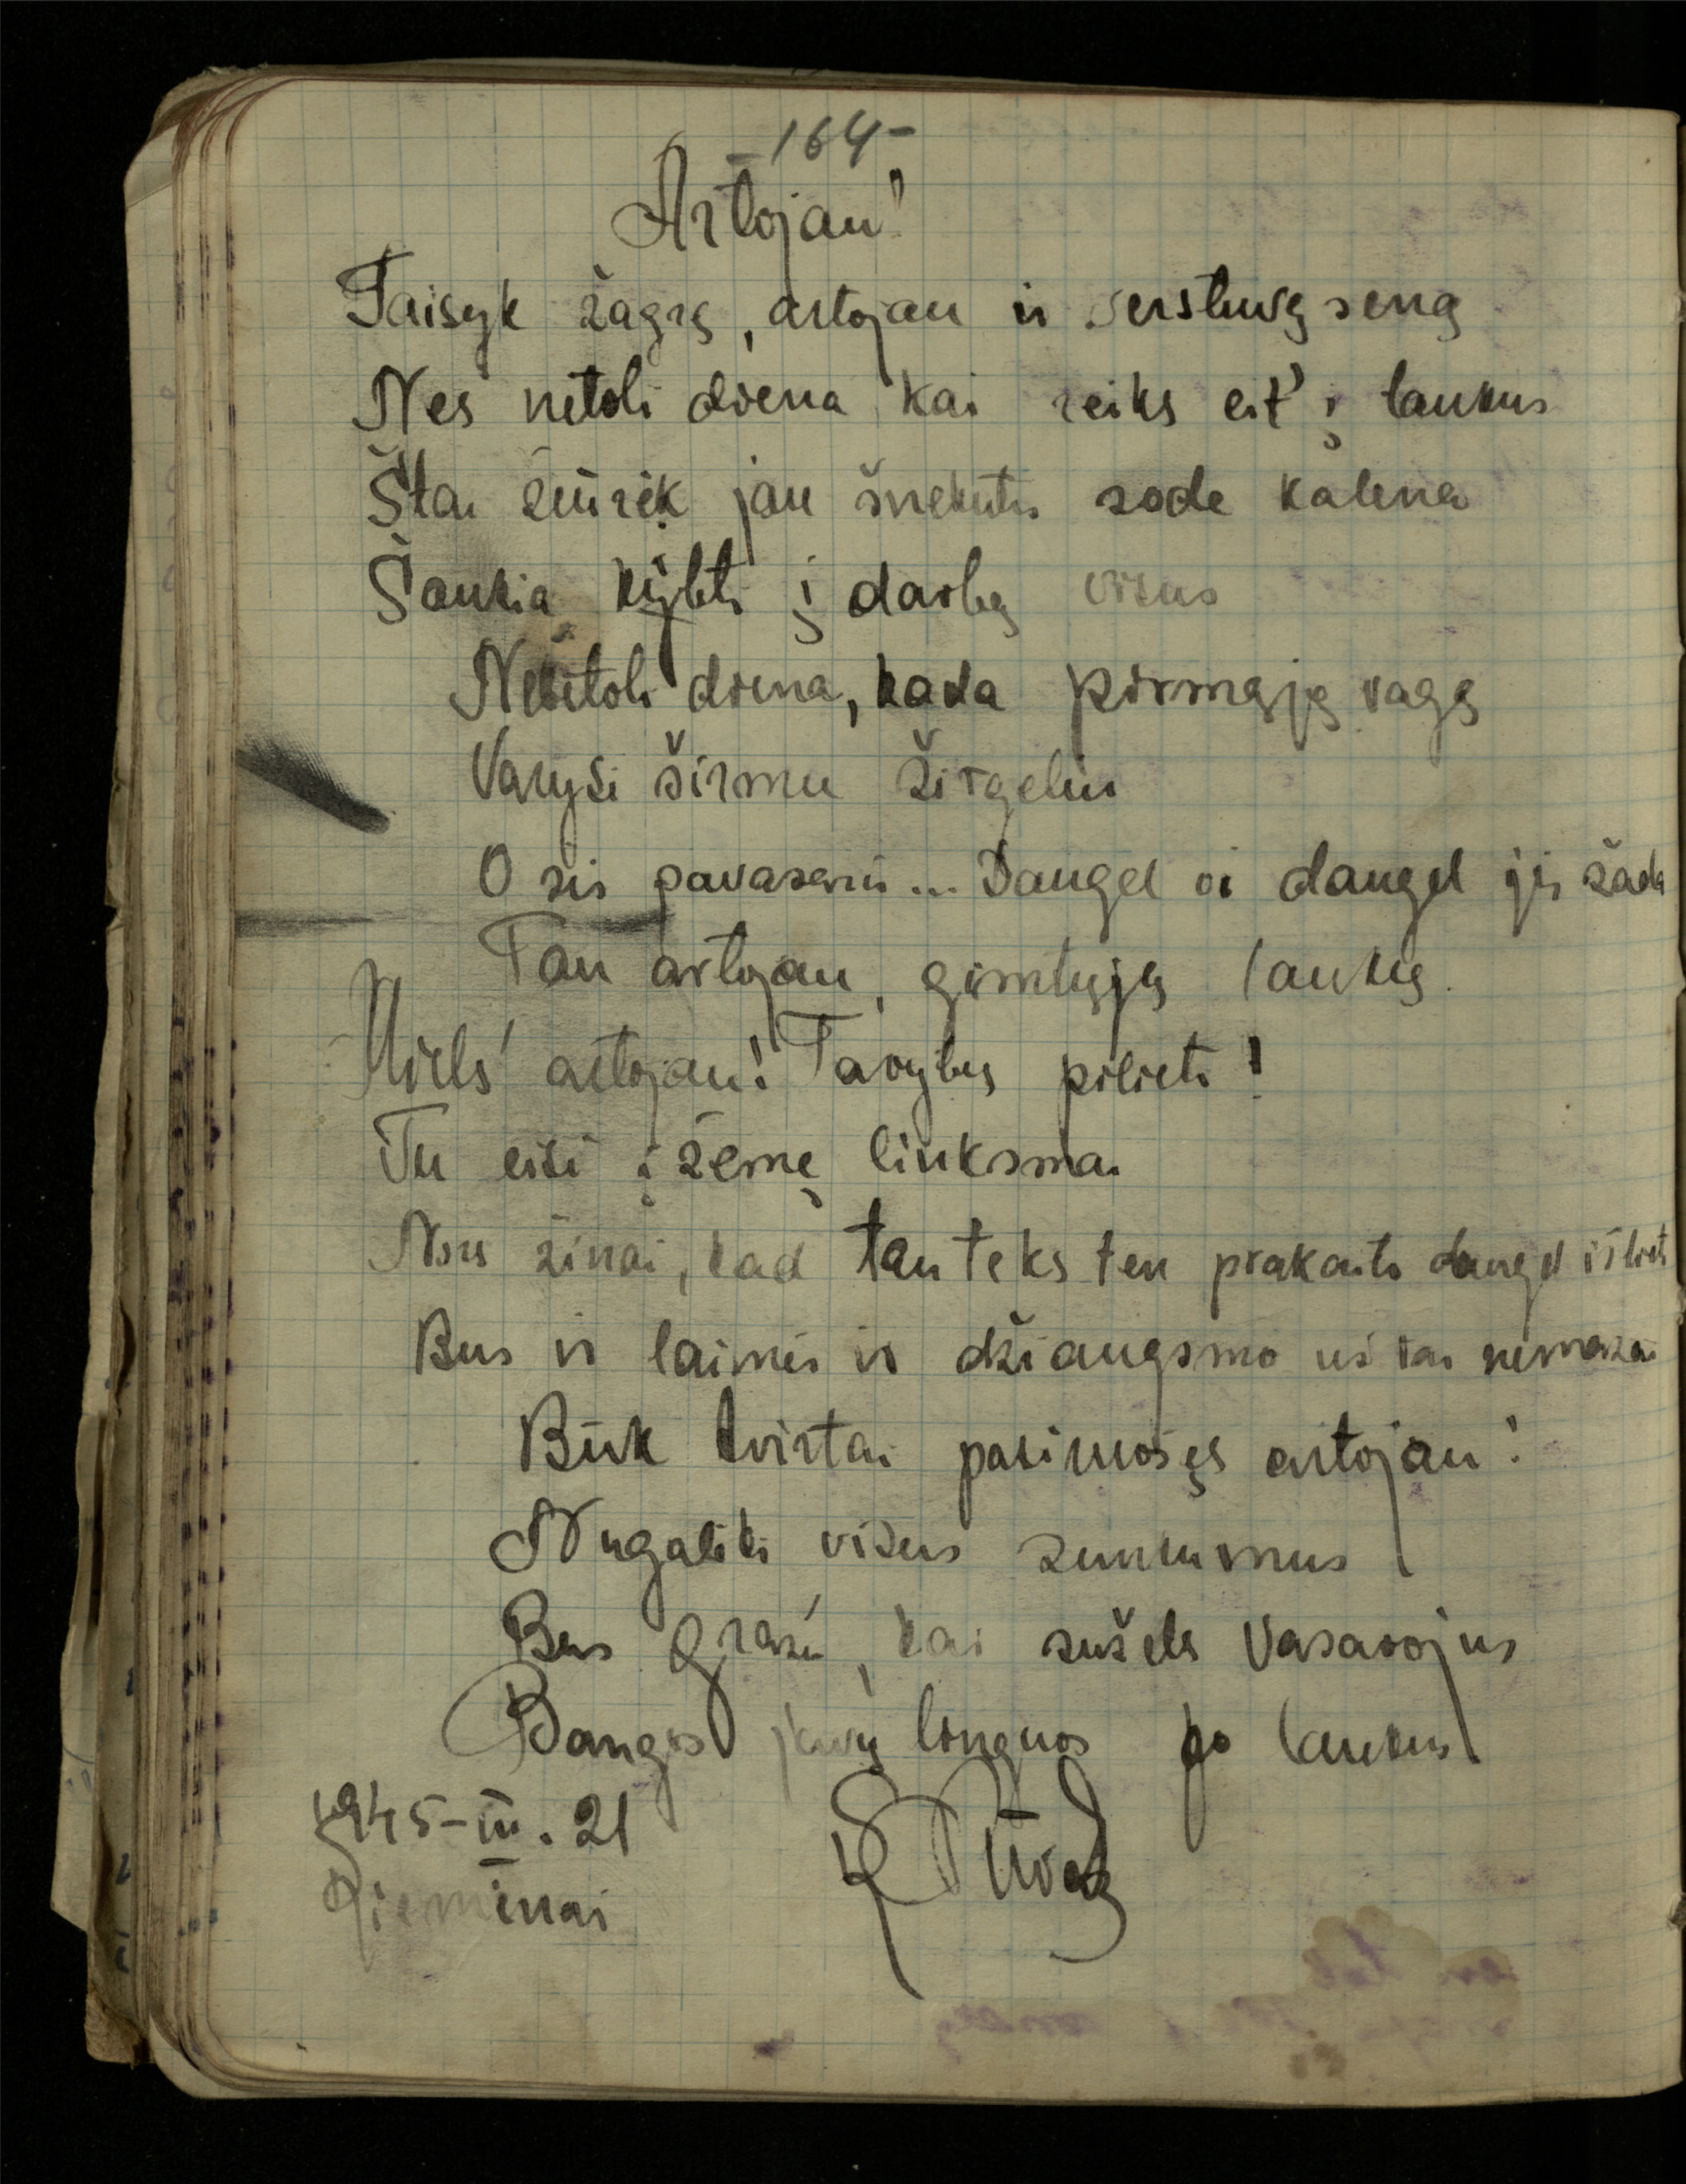 -164-
Artojau!
Taisyk žagrę, artojau ir verstuvę seną
Nes netoli diena kai reiks eit' į laukus
Štai žiūrėk jau šnekutis sode kalena
Šaukia kilti į darbą visus
Netoli diena, kada pirmąją vagą
Varysi širmu žirgeliu
O šis pavasaris... Daugel oi daugel jis žada
Tau artojau, gimtųjų laukų.
Miels' artojau! Tarybų pilieti!
Tu eisi į žemę linksmai
Nors žinai, kad tau teks ten prakaito daugel išlieti
Bus ir laimės ir džiaugsmo už tai nemažai
Būk tvirtai pasiruošęs artojau!
Nugalėti visus sunkumus
Bus gražu, kai sužels vasarojus
Bangos javų linguos po laukus
1945-III.21